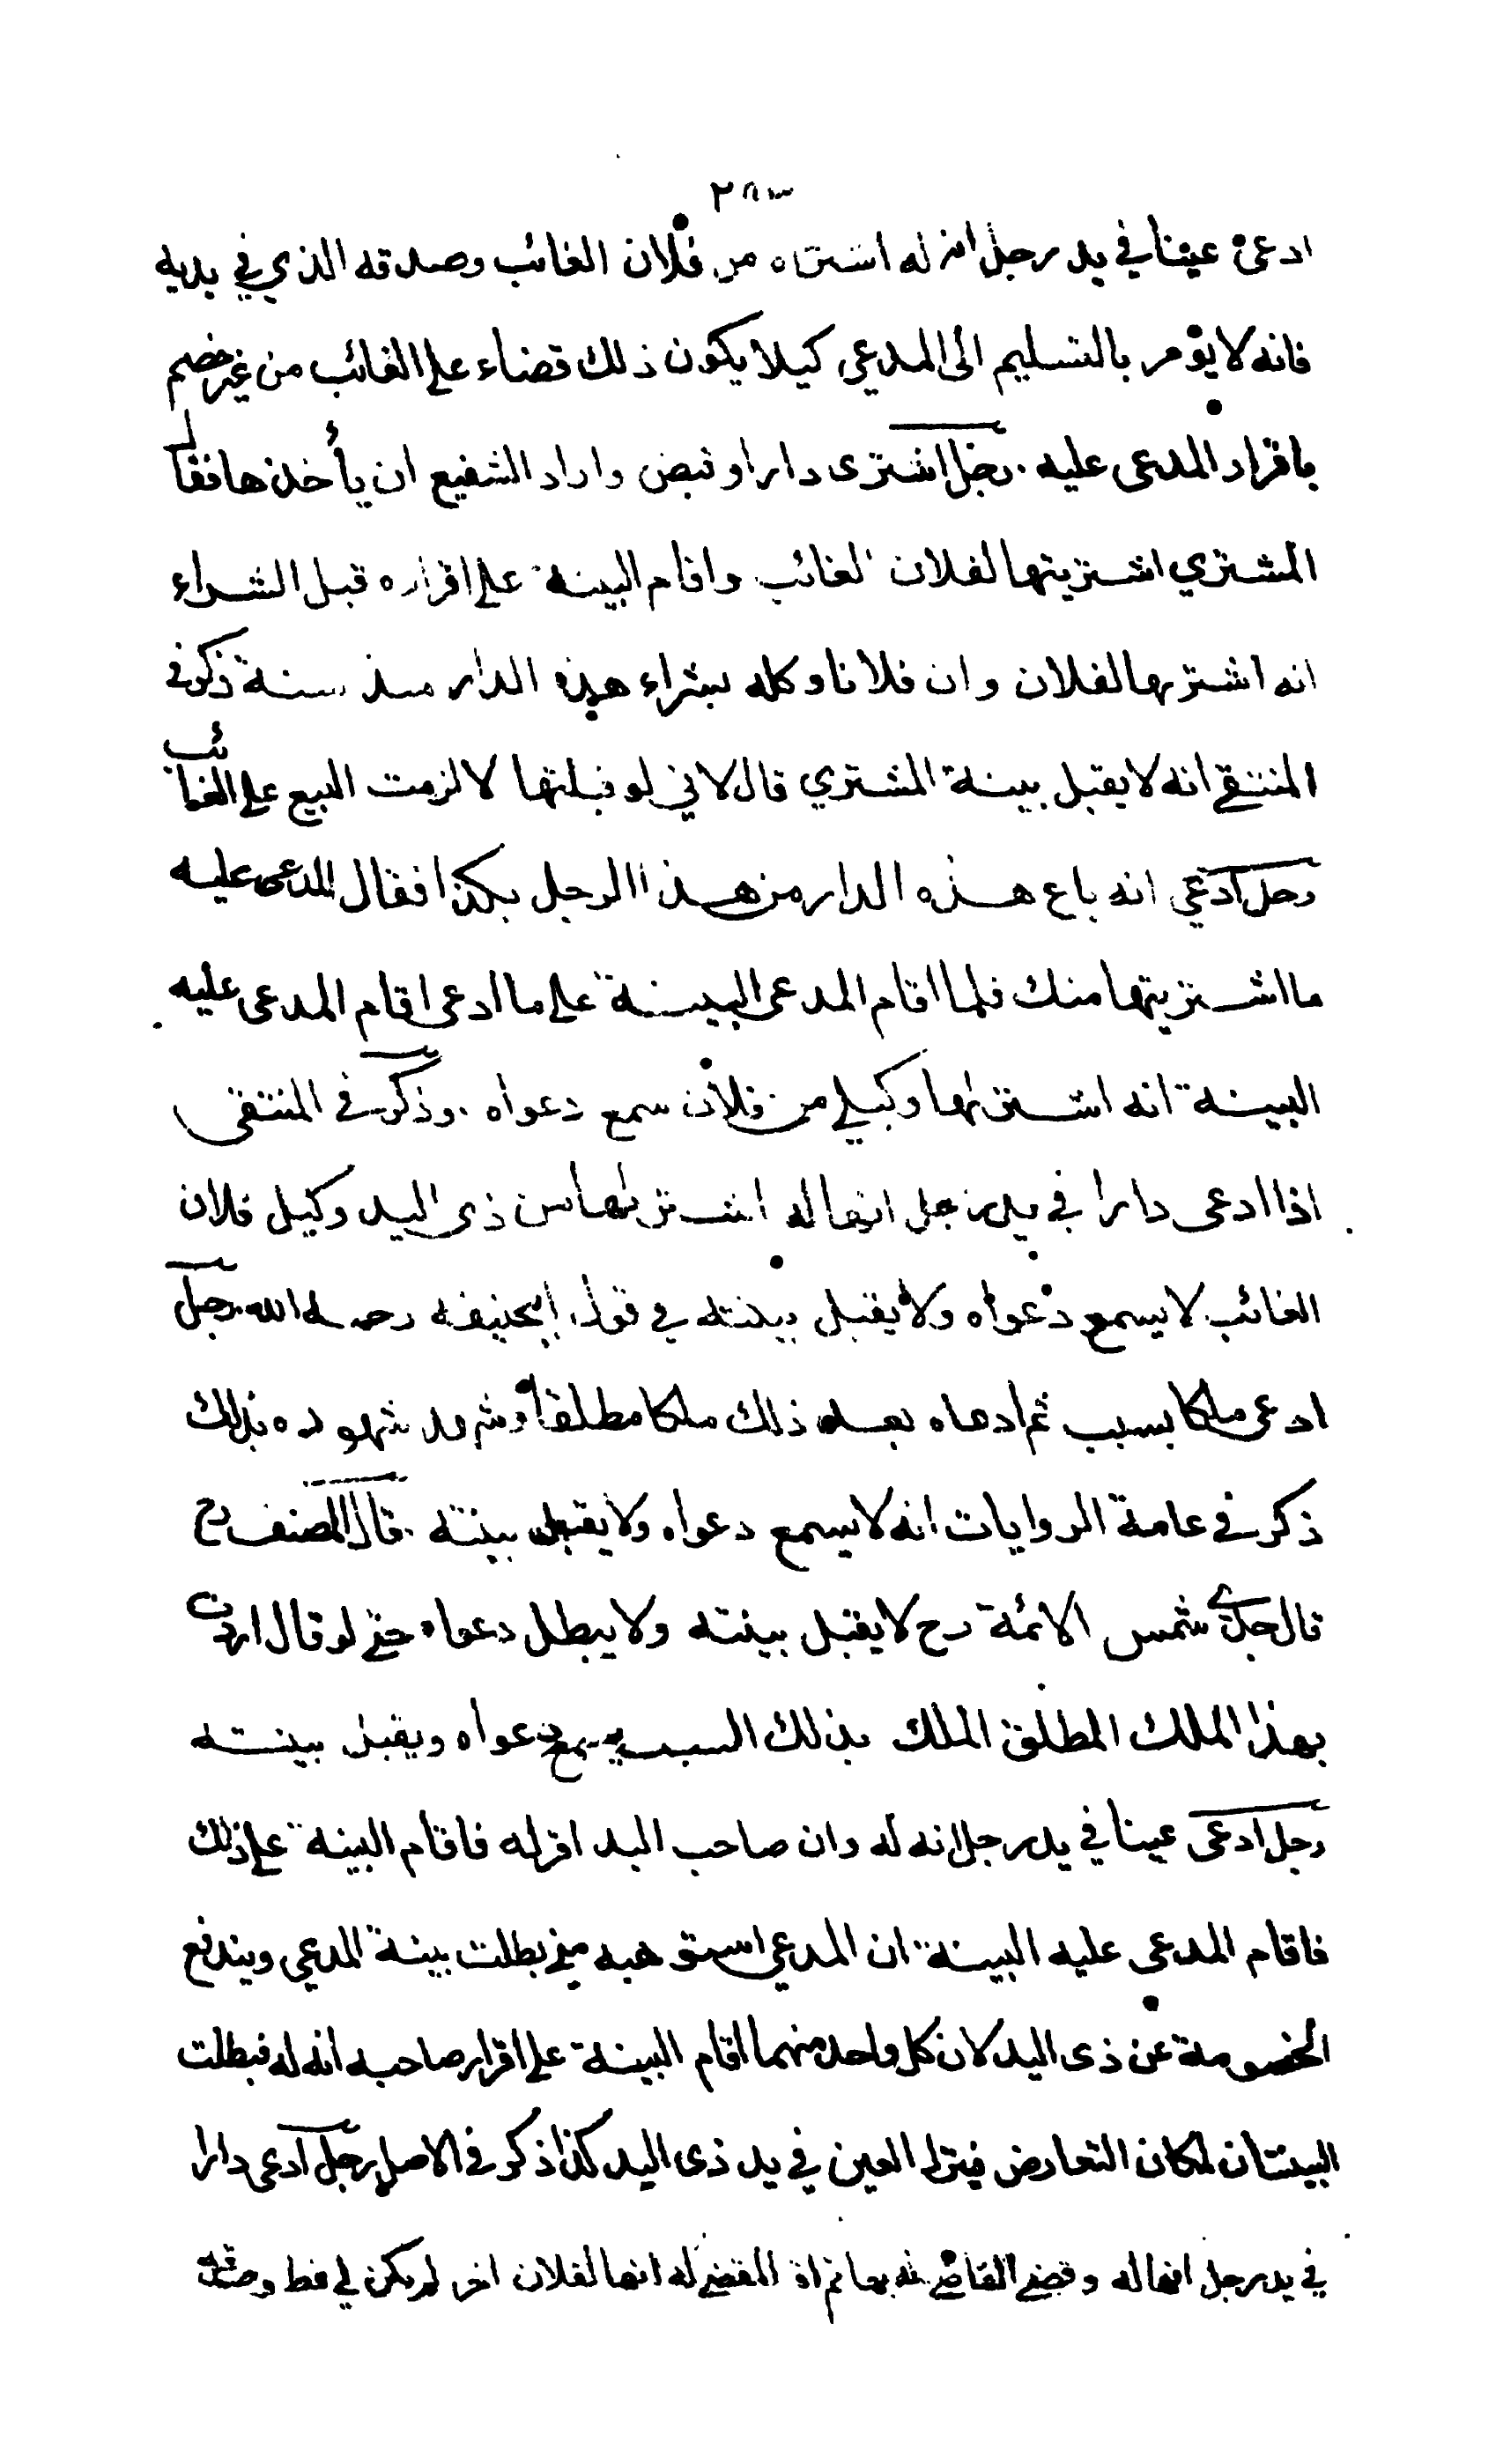 ٢٨٣
ادعى عينا في يد رجل انه له اشتراه من فلان الغائب وصدقه الذي في يديه
فانه لا يؤمر بالتسليم الى المدعي كيلا يكون ذلك قضاء على الغائب من غير خصم
باقرار المدعى عليه . رجل اشترى دارا وقبض واراد الشفيع ان يأخذها فقال
المشتري اشتريتها لفلان الغائب واقام البينة على اقراره قبل الشراء
انه اشتريها لفلان وان فلانا وكله بشراء هذه الدار منذ سنة ذكر في
المنتقى انه لا يقبل بينة المشتري قال لاني لو قبلتها لالزمت البيع على الغائب
رجل ادعى انه باع هذه الدار من هذا الرجل بكذا فقال المدعى عليه
ما اشتريتها منك فلما اقام المدعى البينة على ما ادعى اقام المدعى عليه
البينة انه اشتراها وكيلي من فلان سمع دعواه . وذكر في المنتقى
اذا ادعى دارا في يد رجل انها له اشتراها من ذى اليد وكيل فلان
الغائب لا يسمع دعواه ولا يقبل بينته في قول ابيحنيفه رحمه الله . رجل
ادعى ملكا بسبب ثم ادعاه بعد ذلك ملكا مطلقا وشهد شهوده بذلك
ذكر في عامة الروايات انه لا يسمع دعواه ولا يقبل بينته . قال المصنف رح
قال جدي شمس الائمة رح لا يقبل بينته ولا يبطل دعواه حتى لو قال اردت
بهذا الملك المطلق الملك بذلك السبب يسمع دعواه ويقبل بينته
رجل ادعى عينا في يد رجل انه له وان صاحب اليد اقر له فاقام البينة على ذلك
فاقام المدعى عليه البينة ان المدعي استوهبه مني بطلت بينة المدعي ويندفع
الخصومة عن ذى اليد لان كل واحد منهما اقام البينة على اقرار صاحبه انه له فبطلت
البينتان لمكان التعارض فيترك العين في يد ذى اليد كذا ذكر في الاصل رجل ادعى دارا
في يد رجل انها له وقضى القاضي له بها ثم اقر المقضي له انها لفلان اخر لم يكن لي قط وصدقه